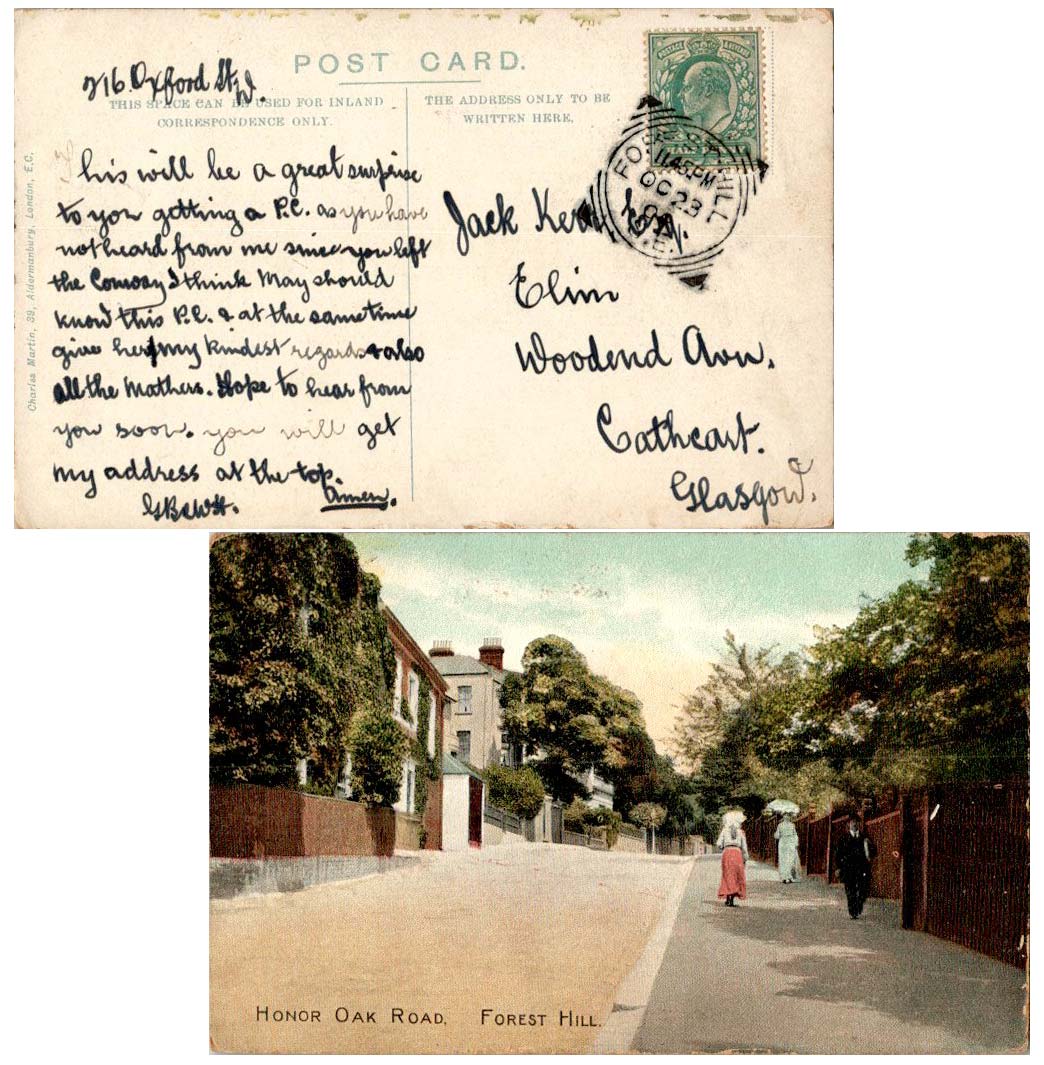 POST CARD.
216 Oxford St W.
THIS SPACE CAN BE USED FOR INLAND
CORRESPONDENCE ONLY.
THE ADDRESS ONLY TO BE
WRITTEN HERE.
This will be a great surprise
to you getting a P.C. as you have
not heard from me since you left
the Conway I think May should
know this P.C. & at the same time
give her my kindest regards & also
all the Mathers. Hope to hear from
you soon. you will get
my address at the top.
Amen.
Jack
Elim
Woodend Avn.
Cathcart.
Glasgow.
POSTAGE & REVENUE
HALF
FOREST HILL
11.45 PM
OC 23
S.E.
Charles Martin, 39, Aldermanbury, London, E.C.
HONOR OAK ROAD, FOREST HILL.